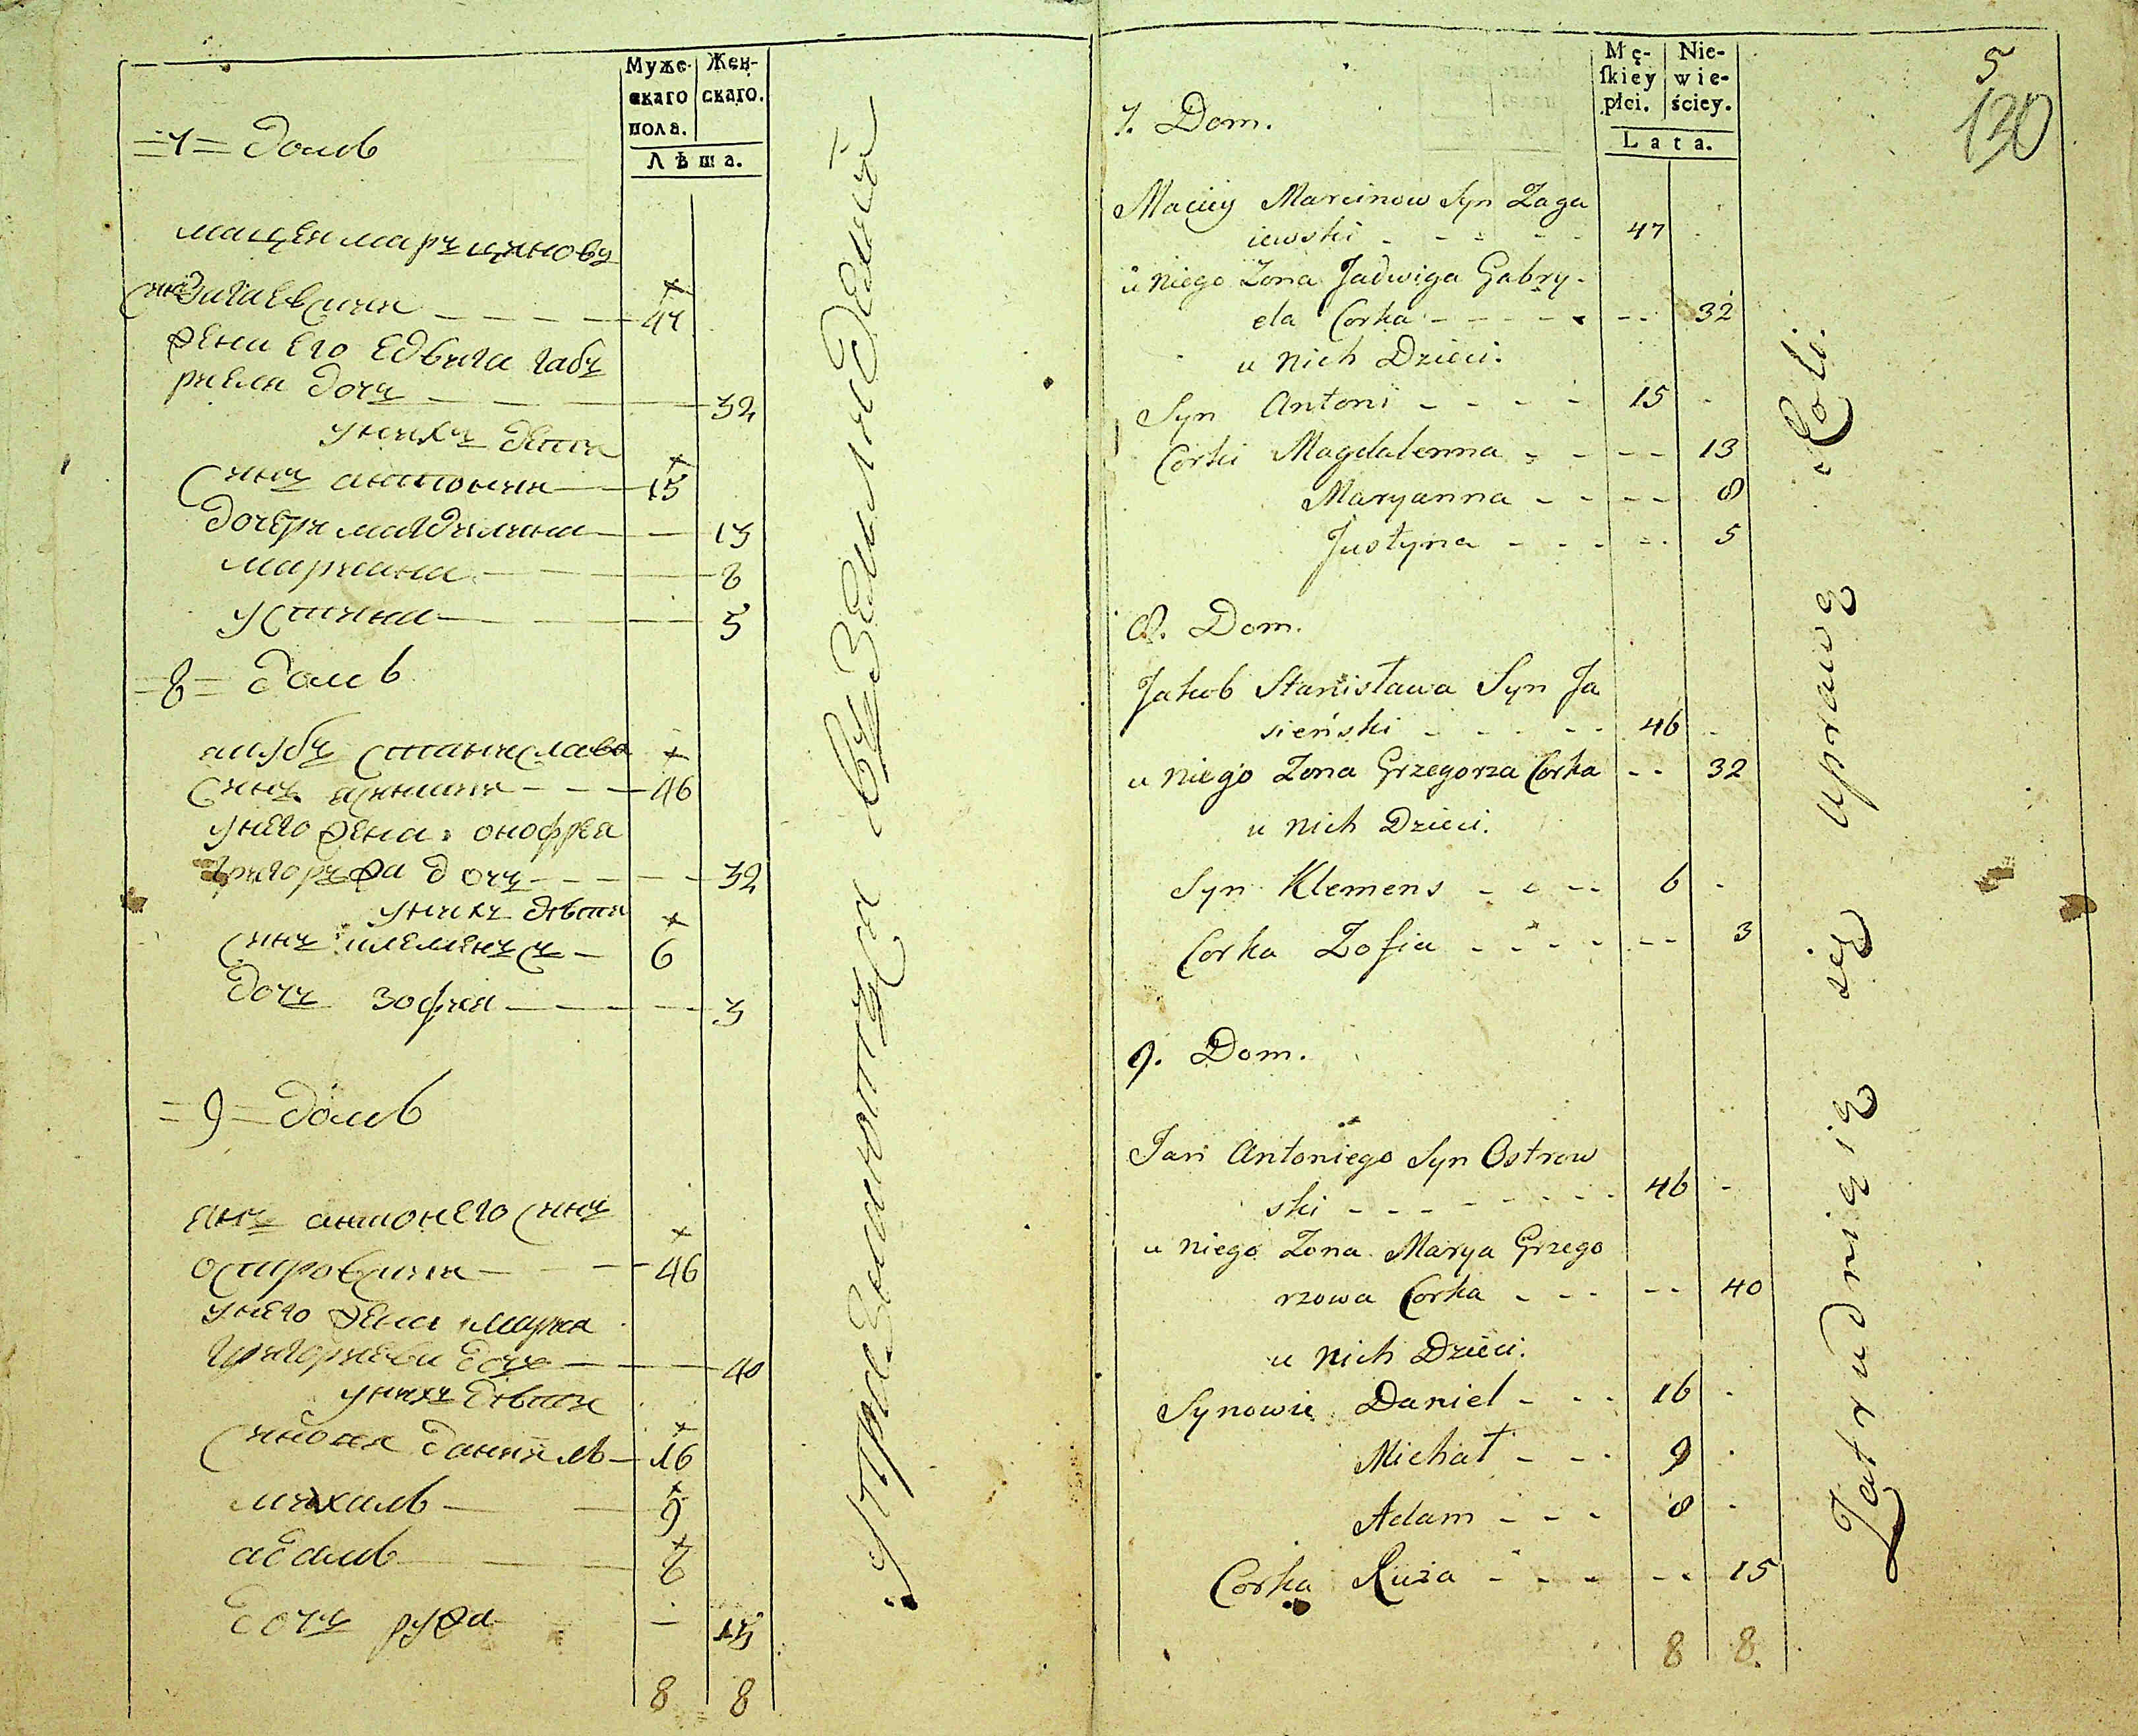 Муже-
скаго
пола.
Жен-
скаго.
Лѣта.
=7= домъ
мацеи марциновъ
сынъ Загаевскии - - - 47
жена его Едвига габъ
риела дочъ - - - 32
у нихъ дети
сынъ антонии - 15
дочери магдалина - 13
мариана - 8
устина - 5
=8= домъ
якубъ станислава
сынъ ясинскии - - - 46
у него жена онофрея
григоръжа дочъ - - - 32
у нихъ дѣти
сынъ клеменъсъ - 6
дочъ зофия - - - 3
=9= домъ
янъ антонего сынъ
островскии - - - 46
у него жена мария
григориева дочъ - - - 40
у нихъ дѣти
синовя даниель - 16
михалъ - 9
адамъ - 8
дочъ ружа - 15
8 8
упражняются въ земледелий
5
130
Mę-
ſkiey
płci.
Nie-
wie-
ściey.
Lata.
7. Dom.
Maciey Marcinow Syn Zaga
iewski - - - - 47
u niego Zona Jadwiga Gabry-
ela Corka - - - - - 32
u nich Dzieci.
Syn Antoni - - - - 15
Corki Magdalenna - - - - 13
Maryanna - - - - 8
Justyna - - - - 5
8. Dom.
Jakub Stanisława Syn Ja
sieński - - - - - 46
u niego Zona Grzegorza Corka - - 32
u nich Dzieci.
Syn Klemens - - - - 6
Corka Zofia - - - - - - 3
9. Dom.
Jan Antoniego Syn Ostrow
ski - - - - - - 46
u niego Zona Marya Grzego
rzowa Corka - - - - - 40
u nich Dzieci.
Synowie Daniel - - - 16
Michał - - - 9
Adam - - - 8
Corka Ruża - - - - - 15
8 8.
Zatrudnięię się uprawą Roli.